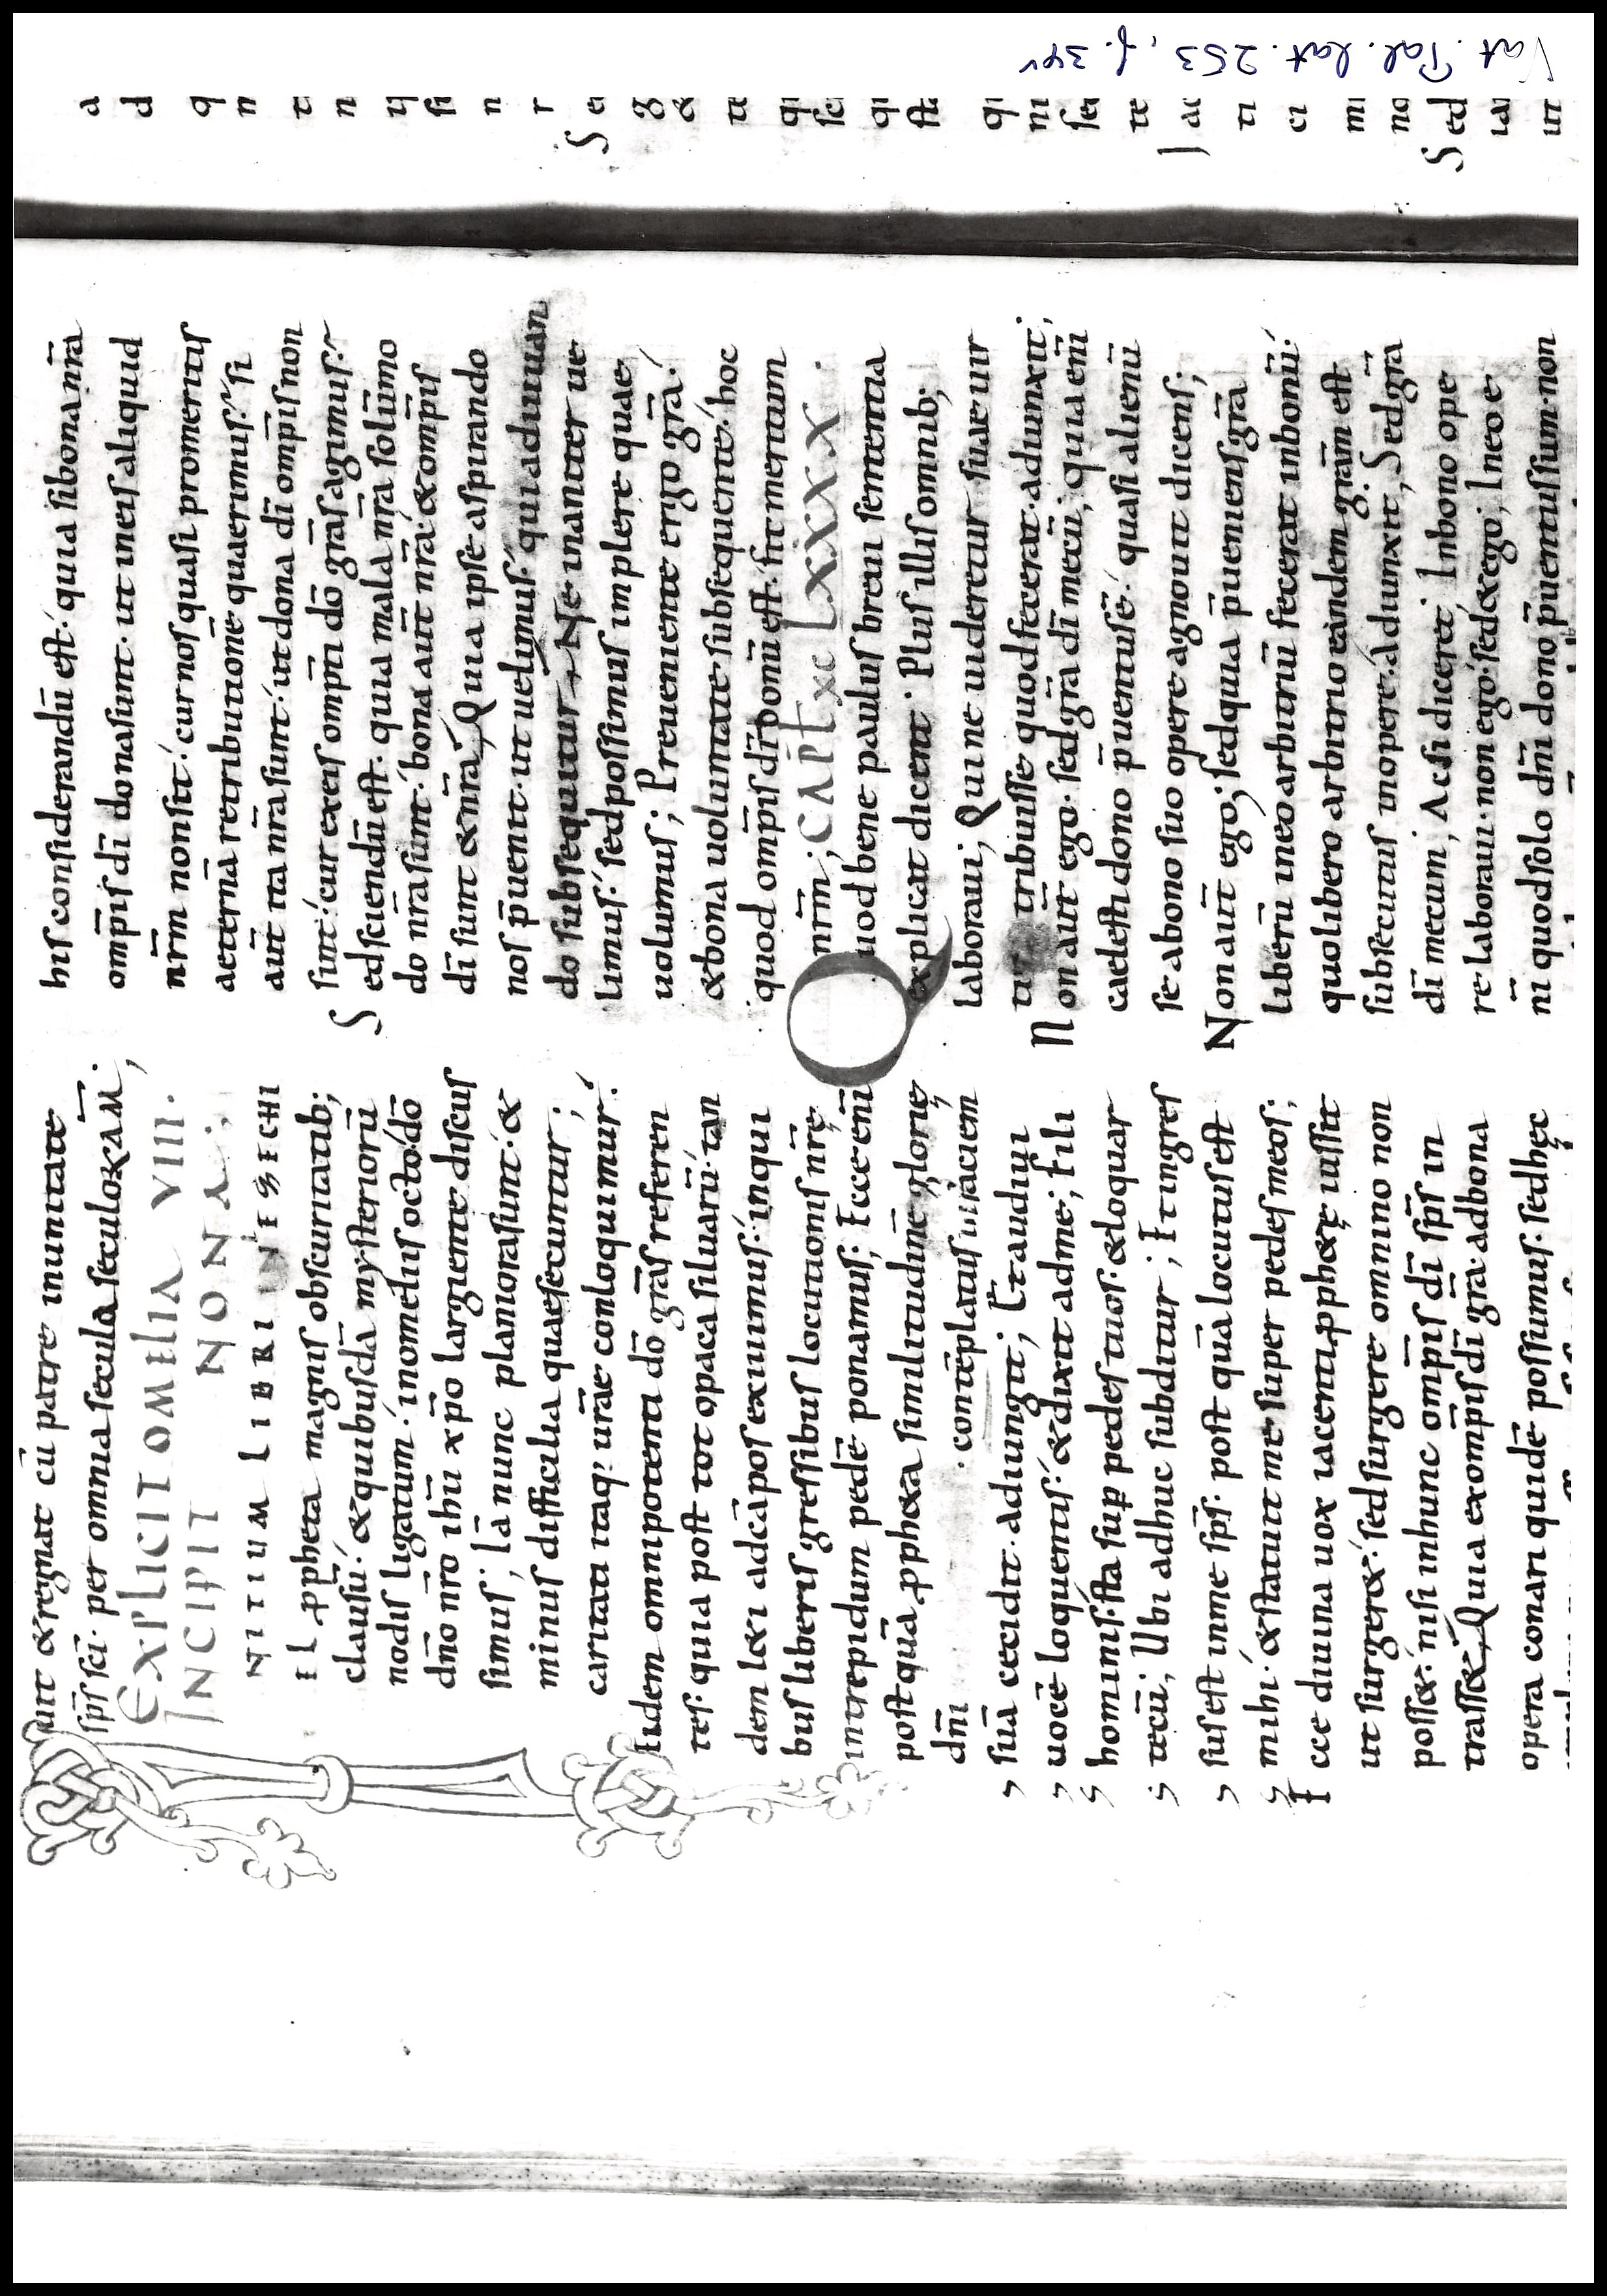 uit &regnat cū patre inunitate
sp̄s sc̄i· per omnia secula seculoꝝ AM̄·
EXPLICIT OMELIA VIII·
INCIPIT NONA·;
NITIUM LIBRI IN EZECHI
EL ꝓpheta magnis obscuritatib;
clausū· &quibusdā mysteriorū
nodis ligatum· inomeliis octo· dō
dn̄o nr̄o ih̄u xp̄o largiente discus
simus; Iā nunc planiora sunt· &
minus difficilia quaesecuntur;
caritati itaq· urāe conloquimur·
Eidem omnipotenti dō grās referen
tes· quia post tot opaca siluarū· tan
dem l&i adcāpos exiuimus· inqui
bus liberis gressibus locutionis nr̄ę
intrepidum pedē ponamus; Ecce enī
postquā ꝓph&a similitudinē glorię
dn̄i · contēplatus infaciem
suā cecidit· adiungit; Et audiui
uocē loquentis· &dixit adme; Fili
hominis· sta sup̱ pedes tuos· &loquar
tecū; Ubi adhuc subditur; Et ingres
sus est inme sp̄s· post quā locutus est
mihi· &statuit me super pedes meos;
Ecce diuina uox iacenti ꝓph&ę iussit
ut surger&· sed surgere omnino non
poss&· nisi inhunc omp̄is dī sp̄s in
trass&; Quia exomp̄is dī grā adbona
opera conari quidē possumus· sedhęc
his considerandū est· quia sibona nr̄a
omp̄is dī dona sunt· ut ineis aliquid
nr̄m non sit· cur nos quasi promeritis
aeternā retributionē quaerimus; si
aut̄ ita nr̄a sunt· ut dona dī omp̄is non
sint· cur exeis omp̄ti dō grās agimus;
Sed sciendū est· quia mala nr̄a solūmo
do nr̄a sunt· bona aut̄ nr̄a· &omp̄is
dī sunt &nr̄a; Quia ipse aspirando
nos p̄uenit· ut uelimus· qui adiuuan
do subsequitur· Ne inaniter ue
limus· sed possimus implere quae
uolumus; Preueniente ergo grā·
&bona uoluntate subsequente· hoc
quod omp̄is dī donū est· fit meritum
nr̄m; CAPT̄ xc LXXXX·
Quod bene paulus breui sententia
explicat dicens· Plus illis omnib;
laboraui; Qui ne uideretur suae uir
tuti tribuisse quod fecerat· adiunxit·
Non aut̄ ego· sed grā dī mecū; quia enī
caelesti dono p̄uentus ē· quasi alienū
se abono suo opere agnouit dicens;
Non aut̄ ego; sed quia p̄ueniens grā
liberū ineo arbitriū fecerat inbonū·
quo libero arbitrio eandem grām est
subsecutus inopere· adiunxit; Sed grā
dī mecum; Acsi diceret· Inbono ope
re laboraui· non ego· sed &ego; Ineo e
ni quod solo dn̄i dono p̄uentus sum· non
a
d
q
n
t
n
q
si
n
r
Se
g
&
te
q
sc
q
sta
q
ni
sed
te
Iac
ti
ci
mi
no
Sed
ia
ut
Vat. Pal. lat. 253, f. 34v